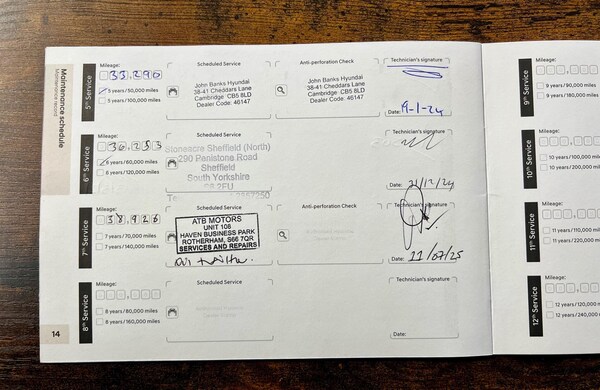 Maintenance schedule
Maintenance record
14
5th Service
Mileage:
33,290
5 years/50,000 miles
5 years/100,000 miles
Scheduled Service
John Banks Hyundai
38-41 Cheddars Lane
Cambridge CB5 8LD
Dealer Code: 46147
Anti-perforation Check
John Banks Hyundai
38-41 Cheddars Lane
Cambridge CB5 8LD
Dealer Code: 46147
Technician's signature
Date: 9-1-24
6th Service
Mileage:
36,253
6 years/60,000 miles
6 years/120,000 miles
Stoneacre Sheffield (North)
290 Penistone Road
Sheffield
South Yorkshire
2FU
Technician's signature
Date: 21/12/24
7th Service
Mileage:
38,926
7 years/70,000 miles
7 years/140,000 miles
Scheduled Service
ATB MOTORS
UNIT 108
HAVEN BUSINESS PARK
ROTHERHAM, S66 7QR
SERVICES AND REPAIRS
Anti-perforation Check
Technician's signature
Date: 11/07/25
8th Service
Mileage:
8 years/80,000 miles
8 years/160,000 miles
Scheduled Service
Technician's signature
Date:
9th Service
Mileage:
9 years/90,000 miles
9 years/180,000 miles
10th Service
Mileage:
10 years/100,000
10 years/200,000
11th Service
Mileage:
11 years/110,000
11 years/220,000
12th Service
Mileage:
12 years/120,000
12 years/240,000